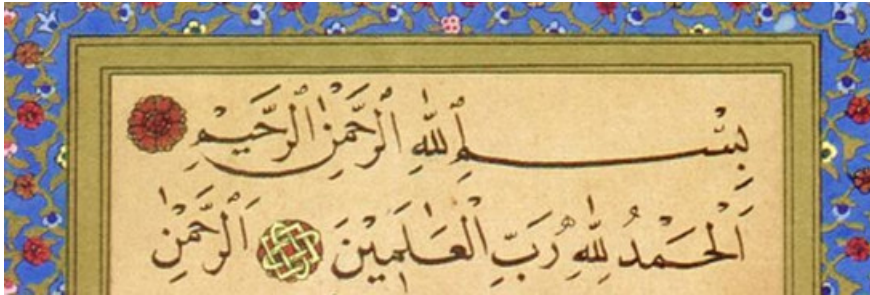 بِسْمِ اللّٰهِ الرَّحْمٰنِ الرَّحِيْمِ
اَلْحَمْدُ لِلّٰهِ رَبِّ الْعَالَمِيْنَ اَلرَّحْمٰنِ